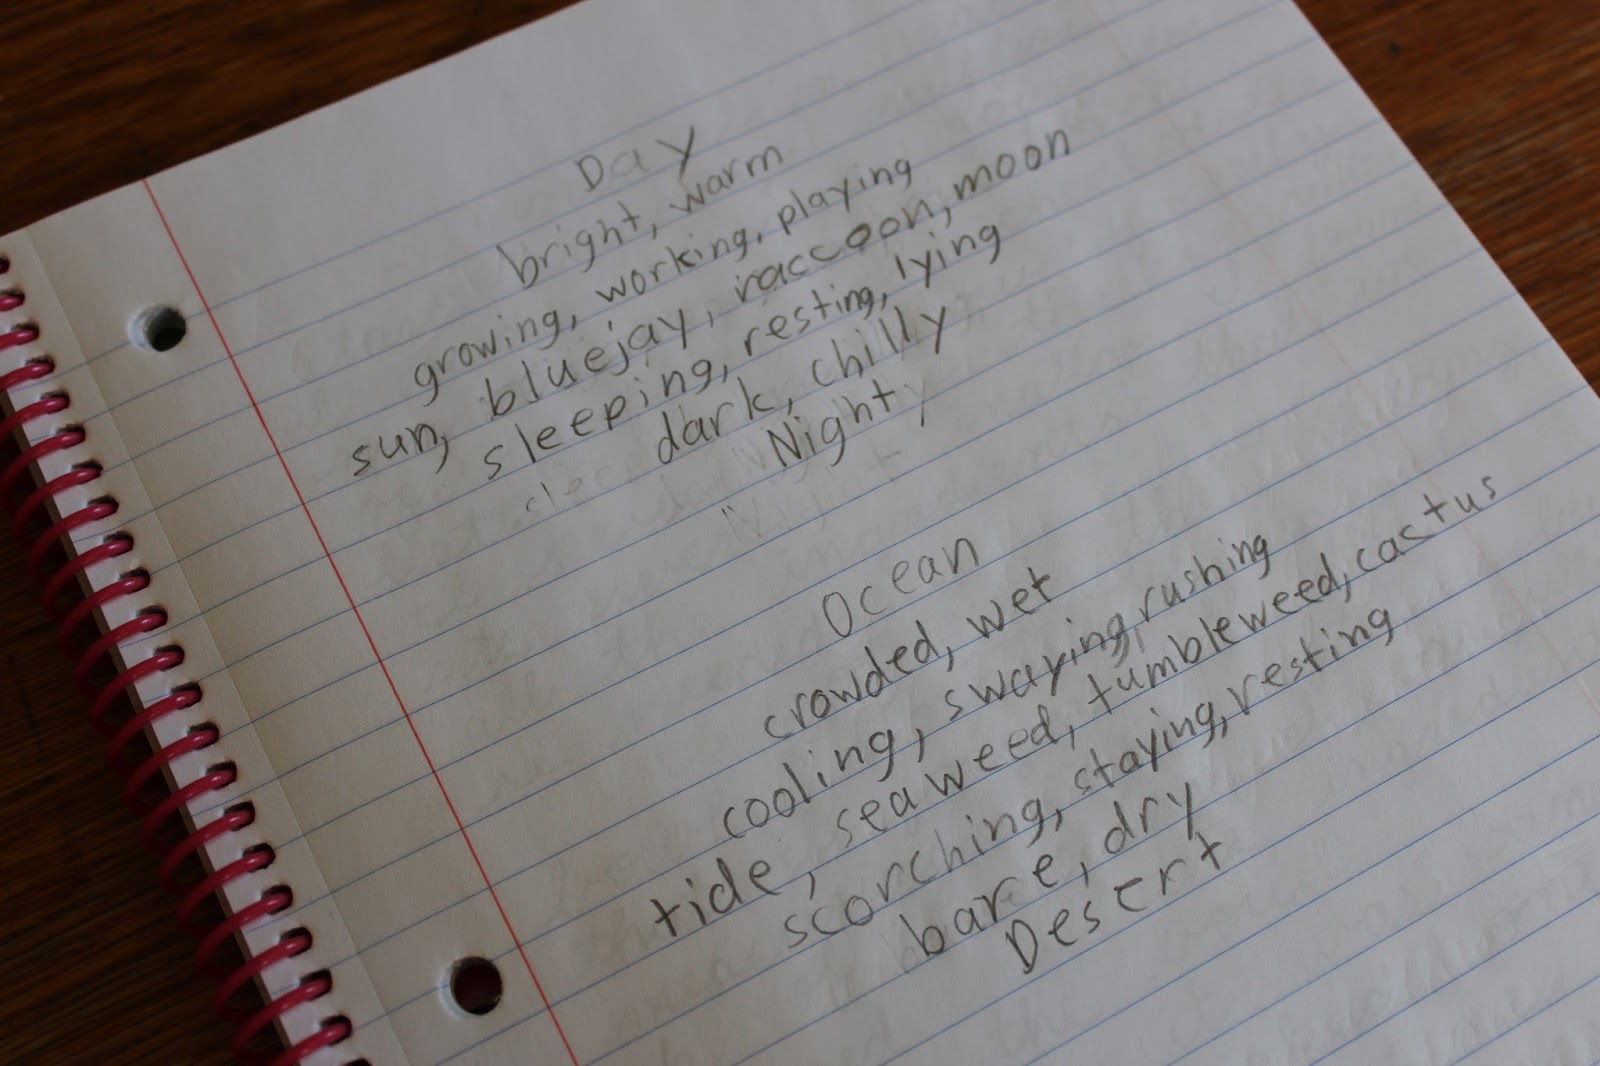 Day
bright, warm
growing, working, playing
sun, bluejay, raccoon, moon
sleeping, resting, lying
dark, chilly
Night
Ocean
crowded, wet
cooling, swaying, rushing
tide, seaweed, tumbleweed, cactus
scorching, staying, resting
bare, dry
Desert